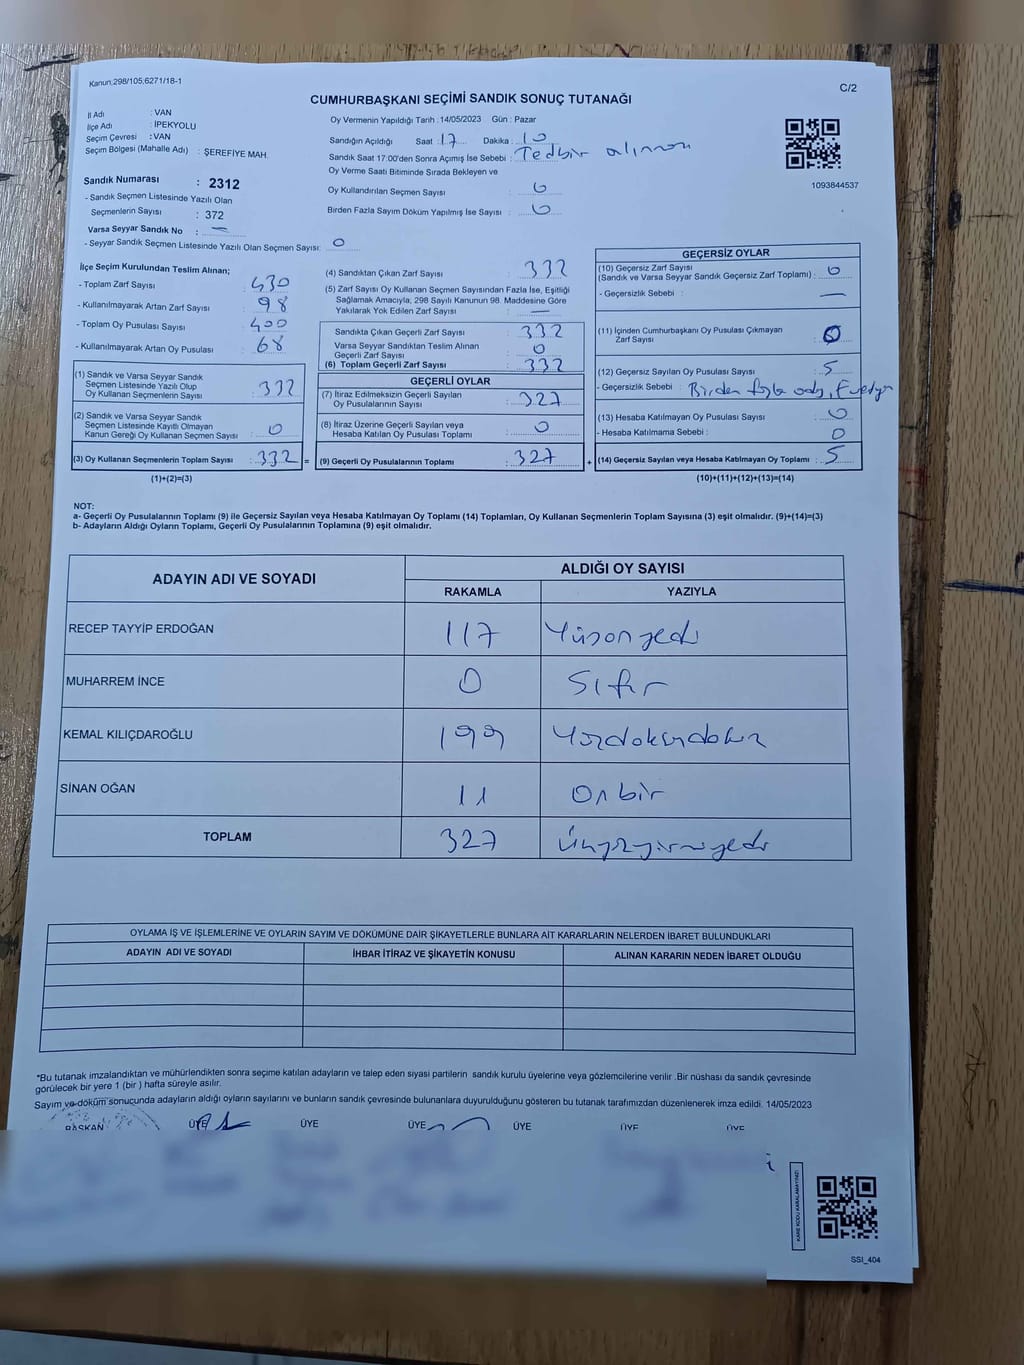 Kanun:298/105,6271/18-1
C/2
CUMHURBAŞKANI SEÇİMİ SANDIK SONUÇ TUTANAĞI
İl Adı : VAN
İlçe Adı : İPEKYOLU
Seçim Çevresi : VAN
Seçim Bölgesi (Mahalle Adı) : ŞEREFİYE MAH.
Sandık Numarası : 2312
- Sandık Seçmen Listesinde Yazılı Olan
Seçmenlerin Sayısı : 372
Varsa Seyyar Sandık No : —
- Seyyar Sandık Seçmen Listesinde Yazılı Olan Seçmen Sayısı: 0
Oy Vermenin Yapıldığı Tarih : 14/05/2023 Gün : Pazar
Sandığın Açıldığı Saat : 17 Dakika : 10
Sandık Saat 17:00'den Sonra Açımış İse Sebebi : Tedbir alınması
Oy Verme Saati Bitiminde Sırada Bekleyen ve
Oy Kullandırılan Seçmen Sayısı : 0
Birden Fazla Sayım Döküm Yapılmış İse Sayısı : 0
1093844537
İlçe Seçim Kurulundan Teslim Alınan;
- Toplam Zarf Sayısı : 430
- Kullanılmayarak Artan Zarf Sayısı : 98
- Toplam Oy Pusulası Sayısı : 400
- Kullanılmayarak Artan Oy Pusulası : 68
(1) Sandık ve Varsa Seyyar Sandık
Seçmen Listesinde Yazılı Olup
Oy Kullanan Seçmenlerin Sayısı : 332
(2) Sandık ve Varsa Seyyar Sandık
Seçmen Listesinde Kayıtlı Olmayan
Kanun Gereği Oy Kullanan Seçmen Sayısı : 0
(3) Oy Kullanan Seçmenlerin Toplam Sayısı : 332
(1)+(2)=(3)
(4) Sandıktan Çıkan Zarf Sayısı : 332
(5) Zarf Sayısı Oy Kullanan Seçmen Sayısından Fazla İse, Eşitliği
Sağlamak Amacıyla, 298 Sayılı Kanunun 98. Maddesine Göre
Yakılarak Yok Edilen Zarf Sayısı : —
Sandıkta Çıkan Geçerli Zarf Sayısı : 332
Varsa Seyyar Sandıktan Teslim Alınan
Geçerli Zarf Sayısı : 0
(6) Toplam Geçerli Zarf Sayısı : 332
GEÇERLİ OYLAR
(7) İtiraz Edilmeksizin Geçerli Sayılan
Oy Pusulalarının Sayısı : 327
(8) İtiraz Üzerine Geçerli Sayılan veya
Hesaba Katılan Oy Pusulası Toplamı : 0
= (9) Geçerli Oy Pusulalarının Toplamı : 327 +
GEÇERSİZ OYLAR
(10) Geçersiz Zarf Sayısı
(Sandık ve Varsa Seyyar Sandık Geçersiz Zarf Toplamı) : 0
- Geçersizlik Sebebi : —
(11) İçinden Cumhurbaşkanı Oy Pusulası Çıkmayan
Zarf Sayısı : 0
(12) Geçersiz Sayılan Oy Pusulası Sayısı : 5
- Geçersizlik Sebebi : Birden fazla
(13) Hesaba Katılmayan Oy Pusulası Sayısı : 0
- Hesaba Katılmama Sebebi : 0
(14) Geçersiz Sayılan veya Hesaba Katılmayan Oy Toplamı : 5
(10)+(11)+(12)+(13)=(14)
NOT:
a- Geçerli Oy Pusulalarının Toplamı (9) ile Geçersiz Sayılan veya Hesaba Katılmayan Oy Toplamı (14) Toplamları, Oy Kullanan Seçmenlerin Toplam Sayısına (3) eşit olmalıdır. (9)+(14)=(3)
b- Adayların Aldığı Oyların Toplamı, Geçerli Oy Pusulalarının Toplamına (9) eşit olmalıdır.
ADAYIN ADI VE SOYADI
ALDIĞI OY SAYISI
RAKAMLA YAZIYLA
RECEP TAYYİP ERDOĞAN 117 Yüzonyedi
MUHARREM İNCE 0 Sıfır
KEMAL KILIÇDAROĞLU 199 Yüzdoksandokuz
SİNAN OĞAN 11 Onbir
TOPLAM 327 Üçyüzyirmiyedi
OYLAMA İŞ VE İŞLEMLERİNE VE OYLARIN SAYIM VE DÖKÜMÜNE DAİR ŞİKAYETLERLE BUNLARA AİT KARARLARIN NELERDEN İBARET BULUNDUKLARI
ADAYIN ADI VE SOYADI İHBAR İTİRAZ VE ŞİKAYETİN KONUSU ALINAN KARARIN NEDEN İBARET OLDUĞU
*Bu tutanak imzalandıktan ve mühürlendikten sonra seçime katılan adayların ve talep eden siyasi partilerin sandık kurulu üyelerine veya gözlemcilerine verilir .Bir nüshası da sandık çevresinde
görülecek bir yere 1 (bir ) hafta süreyle asılır.
Sayım ve döküm sonucunda adayların aldığı oyların sayılarını ve bunların sandık çevresinde bulunanlara duyurulduğunu gösteren bu tutanak tarafımızdan düzenlenerek imza edildi. 14/05/2023
BAŞKAN ÜYE ÜYE ÜYE ÜYE ÜYE ÜYE
KARE KODU KARALAMAYINIZ!
SSI_404